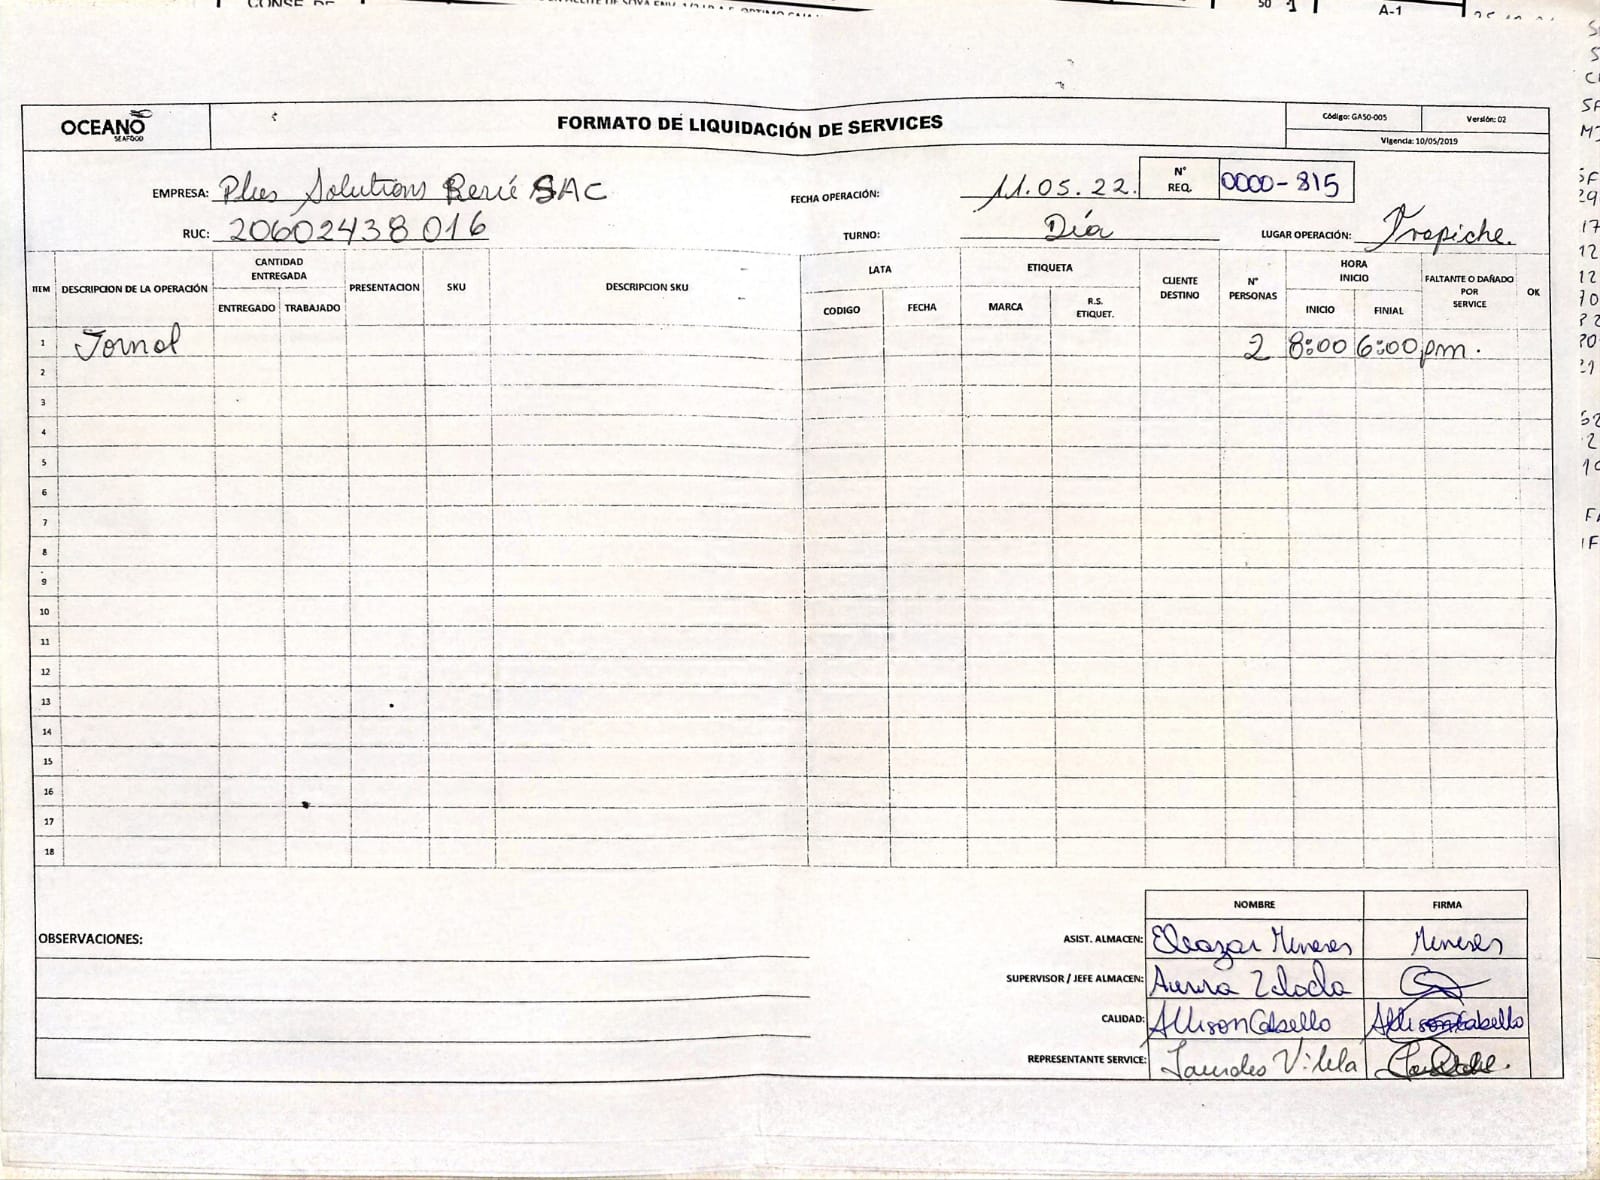 CONSE DE
50 1
A-1
OCEANO
SEAFOOD
FORMATO DE LIQUIDACIÓN DE SERVICES
Código: GASO-005
Versión: 02
Vigencia: 10/05/2019
EMPRESA: Plus Solutions Perú SAC
FECHA OPERACIÓN: 11.05.22.
N° REQ. 0000-815
RUC: 20602438016
TURNO: Día
LUGAR OPERACIÓN: Trapiche.
ITEM
DESCRIPCION DE LA OPERACIÓN
CANTIDAD ENTREGADA
ENTREGADO
TRABAJADO
PRESENTACION
SKU
DESCRIPCION SKU
LATA
CODIGO
FECHA
ETIQUETA
MARCA
R.S. ETIQUET.
CLIENTE DESTINO
N° PERSONAS
HORA INICIO
INICIO
FINIAL
FALTANTE O DAÑADO POR SERVICE
OK
1 Jornal 2 8:00 6:00 pm.
2
3
4
5
6
7
8
9
10
11
12
13
14
15
16
17
18
NOMBRE
FIRMA
OBSERVACIONES:
ASIST. ALMACEN: Eleazar Meneses Meneses
SUPERVISOR / JEFE ALMACEN:
CALIDAD: Allison Cabello Allison Cabello
REPRESENTANTE SERVICE: Lourdes Vilela